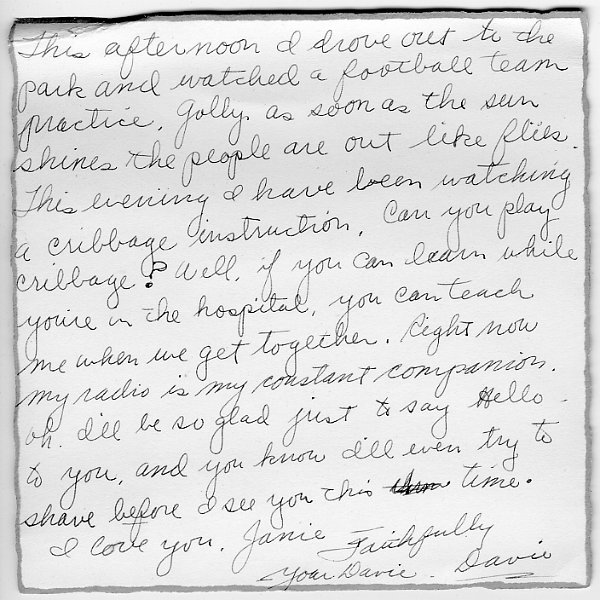 This afternoon I drove out to the
park and watched a football team
practice. Golly as soon as the sun
shines the people are out like flies.
This evening I have been watching
a cribbage instruction. Can you play
cribbage? Well, if you can learn while
you're in the hospital, you can teach
me when we get together. Right now
my radio is my constant companion.
oh. I'll be so glad just to say Hello
to you, and you know I'll even try to
shave before I see you this time.
I love you, Janie Faithfully
Your Davie. Davie